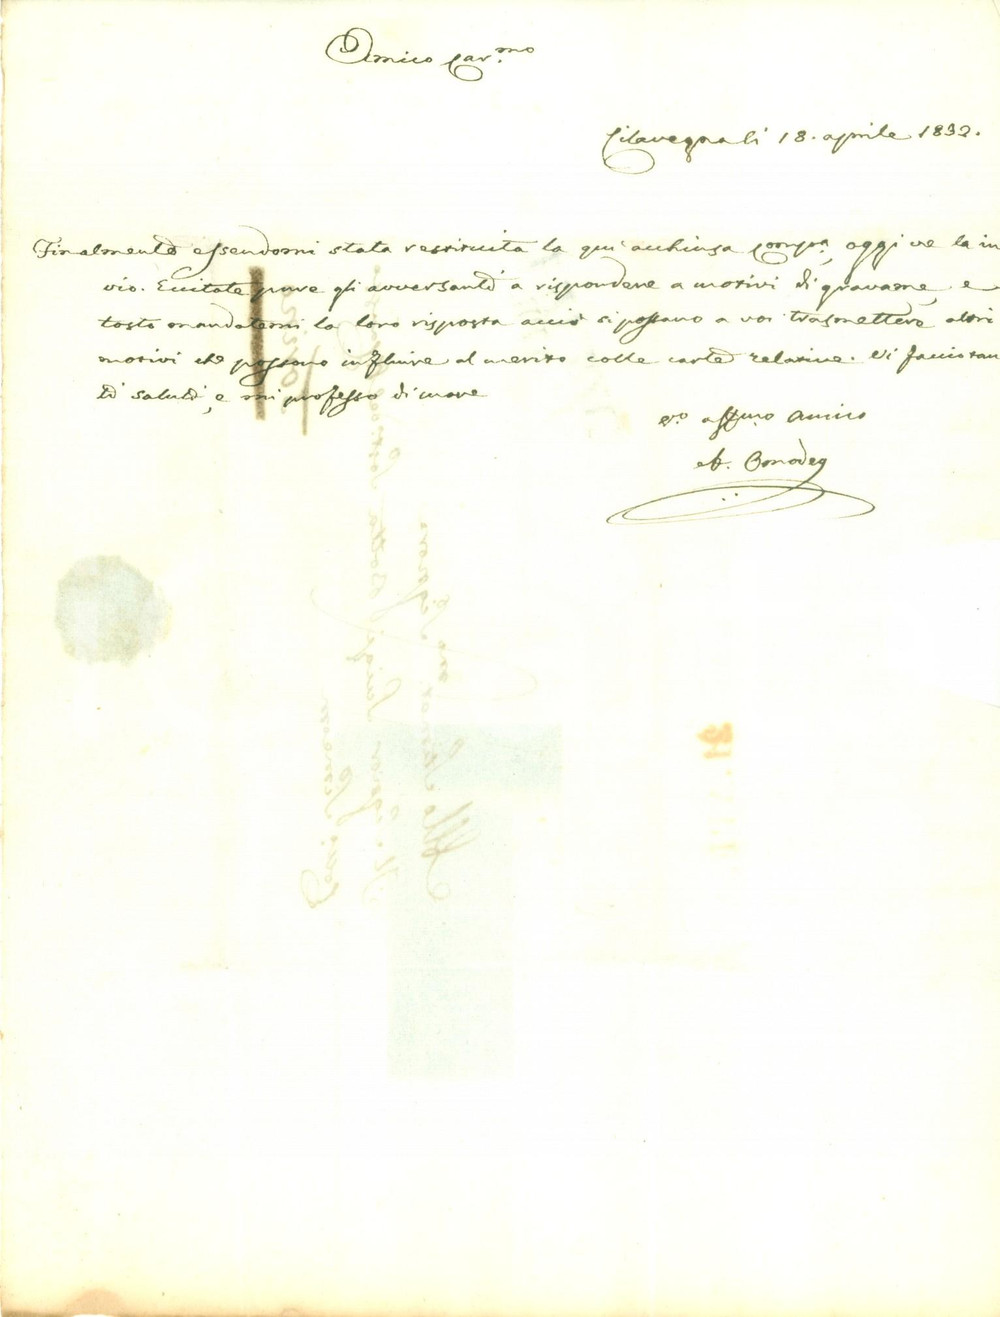 Amico Car.mo
Cilavegna li 18. aprile 1832.
Finalmente essendomi stata restituita la quì acchiusa compsa, oggi ve la in
vio. Eccitate pure gli avversanti a rispondere a motivi di gravame, e
tosto mandatemi la loro risposta acciò si possano a voi trasmettere altri
motivi che possono influire al merito colle carte relative. Vi faccio tan
ti saluti, e mi professo di cuore
Vo. affmo. Amico